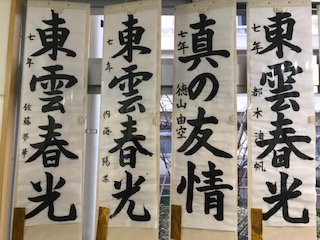 東雲春光
七年 都木 湳帆
真の友情
七年 徳山 由空
東雲春光
七年 内海 陽菜
東雲春光
七年 佐藤 夢華